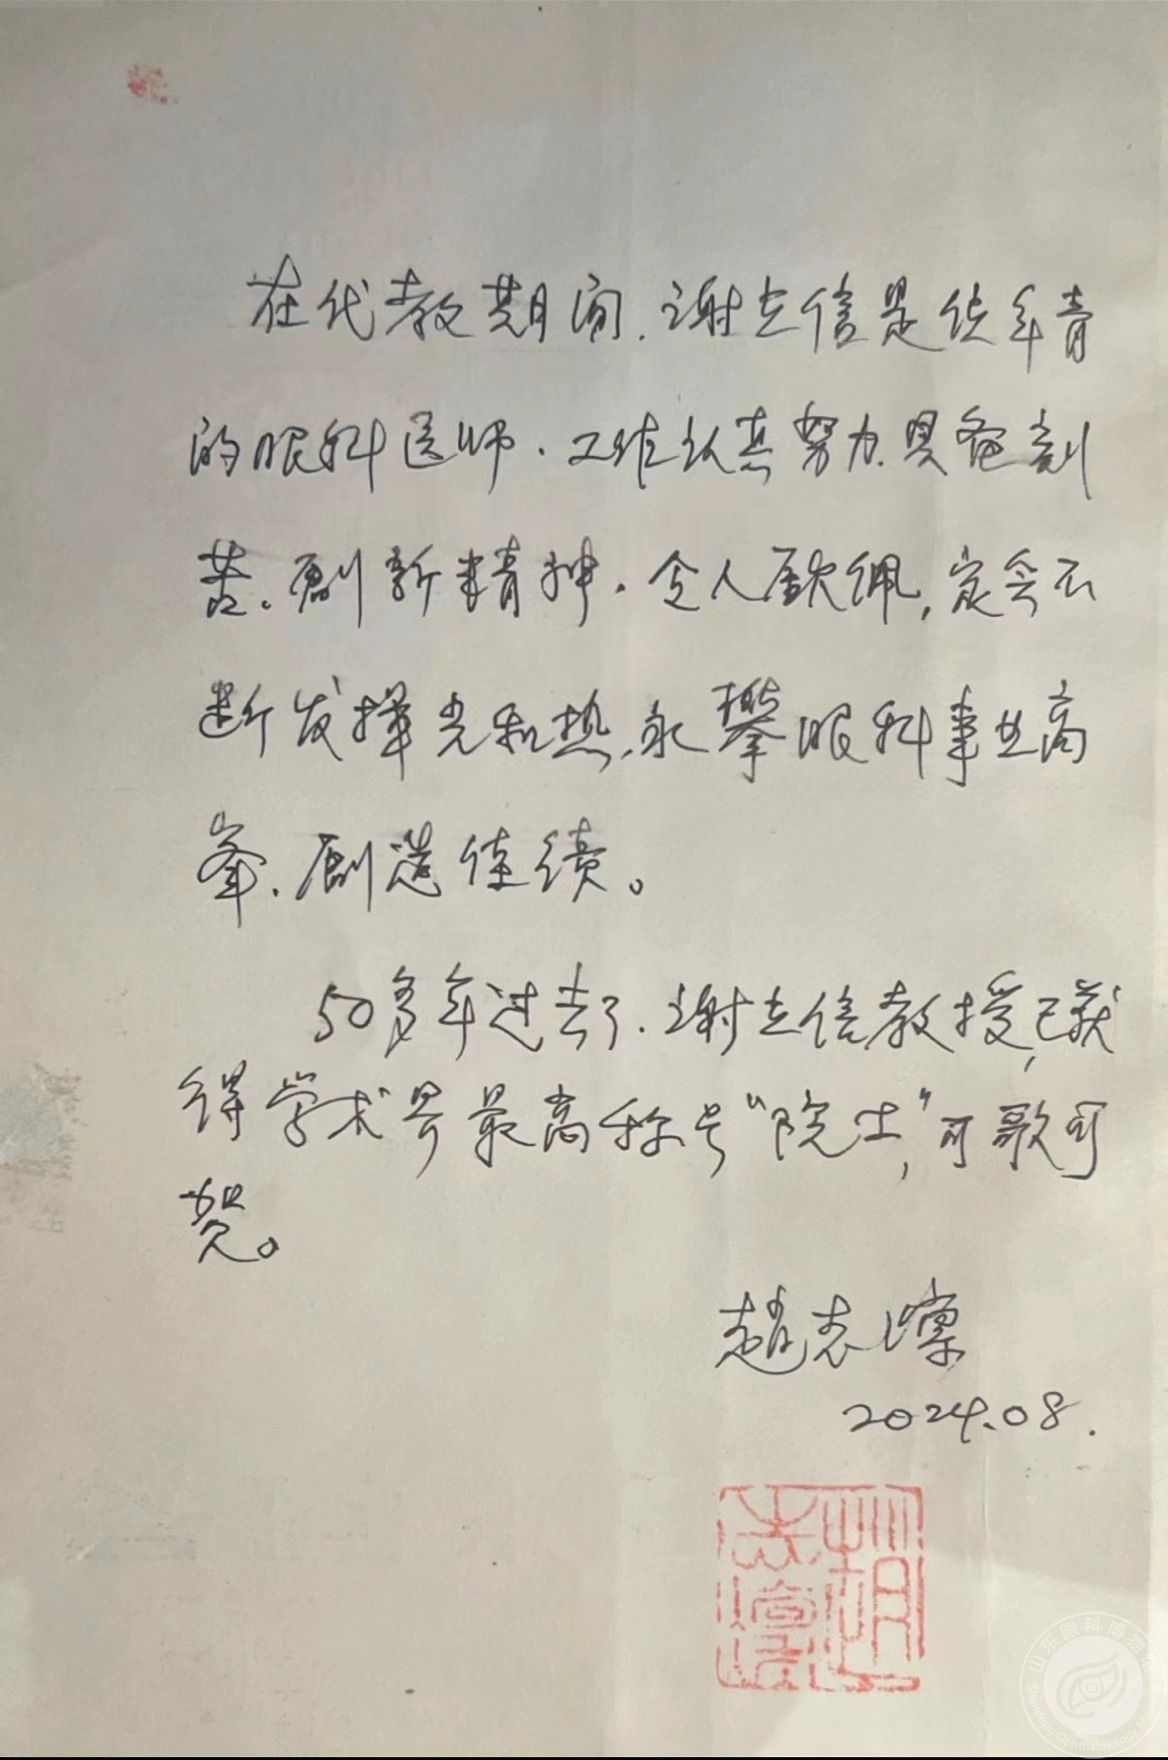 在代教期间.谢立信是位年青
的眼科医师.工作认真努力.具备刻
苦.创新精神.令人钦佩,定会不
断发挥光和热.永攀眼科事业高
峯.创造佳绩。
50多年过去了.谢立信教授,已获
得学术界最高称号“院士”,可歌可
贺。
赵志
2024.08.
山东眼科博物馆
Shandong Ophthalmology Museum